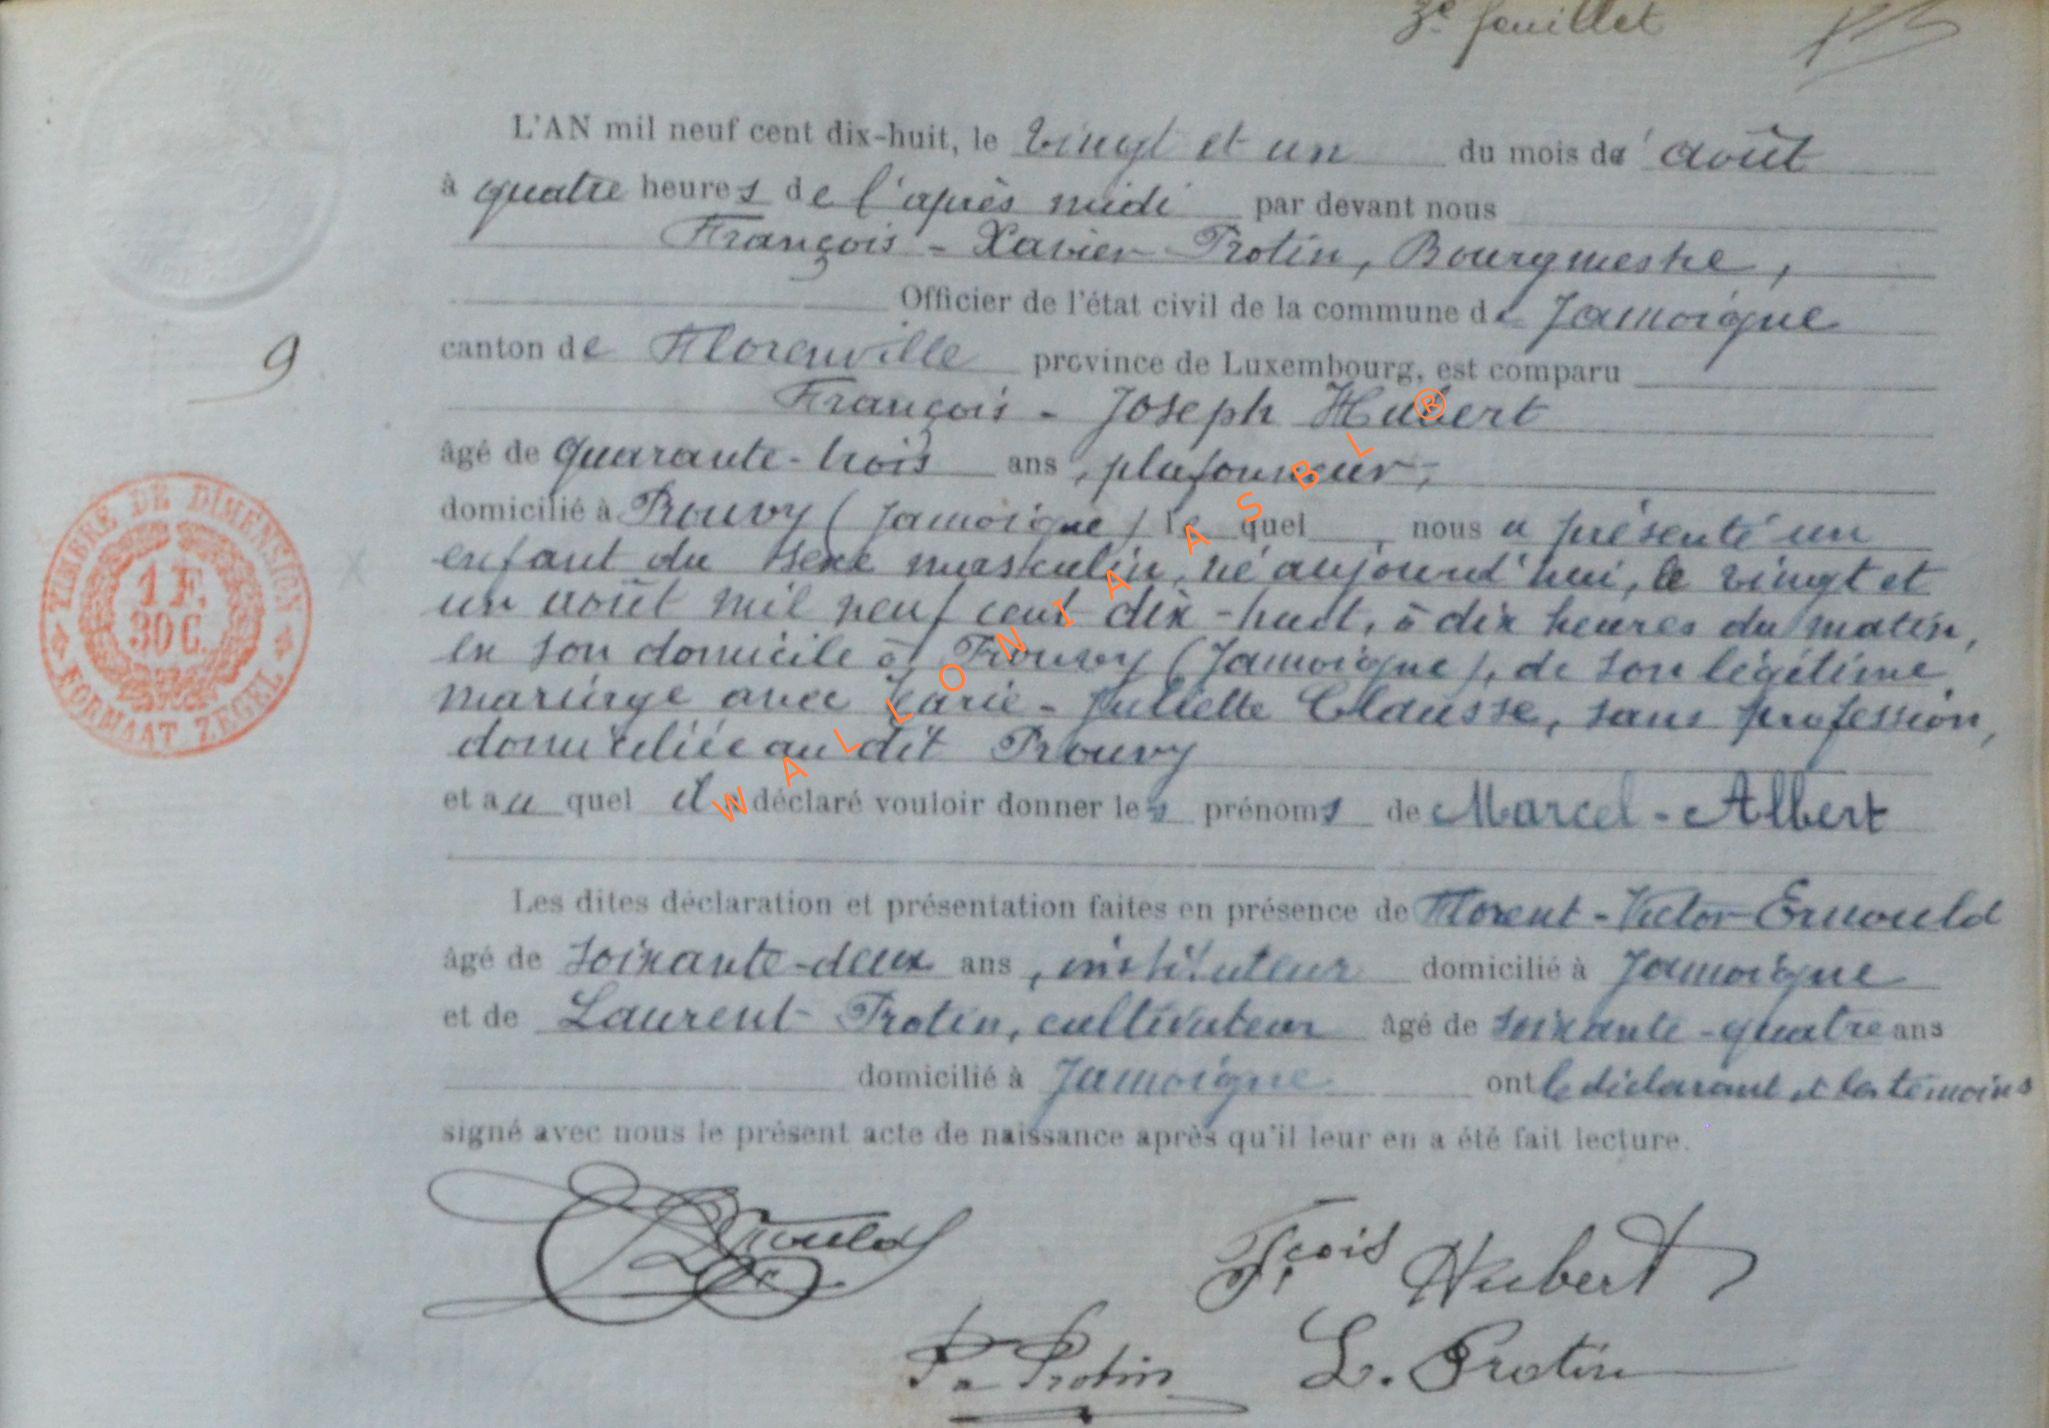 3e feuillet
L'AN mil neuf cent dix-huit, le vingt et un du mois de août
à quatre heures de l'après midi par devant nous
François - Xavier Protin, Bourgmestre,
Officier de l'état civil de la commune de Jamoigne
9
canton de Florenville province de Luxembourg, est comparu
François - Joseph Hubert
âgé de quarante-trois ans, plafonneur,
domicilié à Prouvy (Jamoigne) lequel, nous a présenté un
enfant du sexe masculin, né aujourd'hui, le vingt et
un août mil neuf cent dix-huit, à dix heures du matin,
en son domicile à Prouvy (Jamoigne), de son légitime
mariage avec Marie - Juliette Clausse, sans profession,
domiciliée au dit Prouvy
et auquel il a déclaré vouloir donner les prénoms de Marcel - Albert
Les dites déclaration et présentation faites en présence de Florent - Victor Ernould
âgé de soixante-deux ans, instituteur domicilié à Jamoigne
et de Laurent Protin, cultivateur âgé de soixante-quatre ans
domicilié à Jamoigne ont le déclarant et les témoins
signé avec nous le présent acte de naissance après qu'il leur en a été fait lecture.
Ernould
Fçois Hubert
Protin
L. Protin
TIMBRE DE DIMENSION
1 F.
30 C.
FORMAAT ZEGEL
WALLONIA ASBL ®